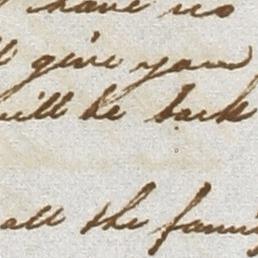 have no
give you
will be back
all the family